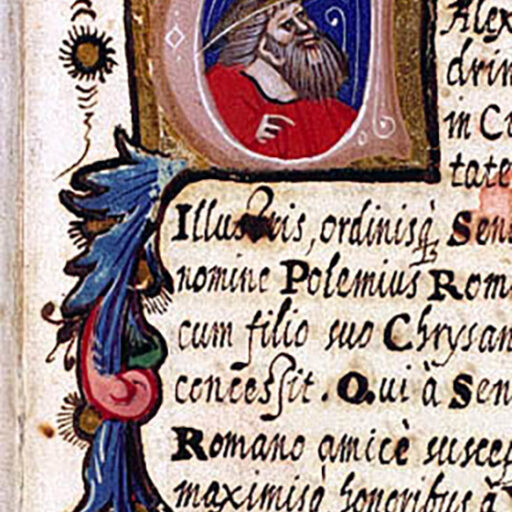 Alex
drin
in Ci
tate
Illustris, ordinisq́; Sen
nomine Polemius Rom
cum filio suo Chrysan
concessit. Qui à Sen
Romano amicè suscep
maximisq́ honoribus à